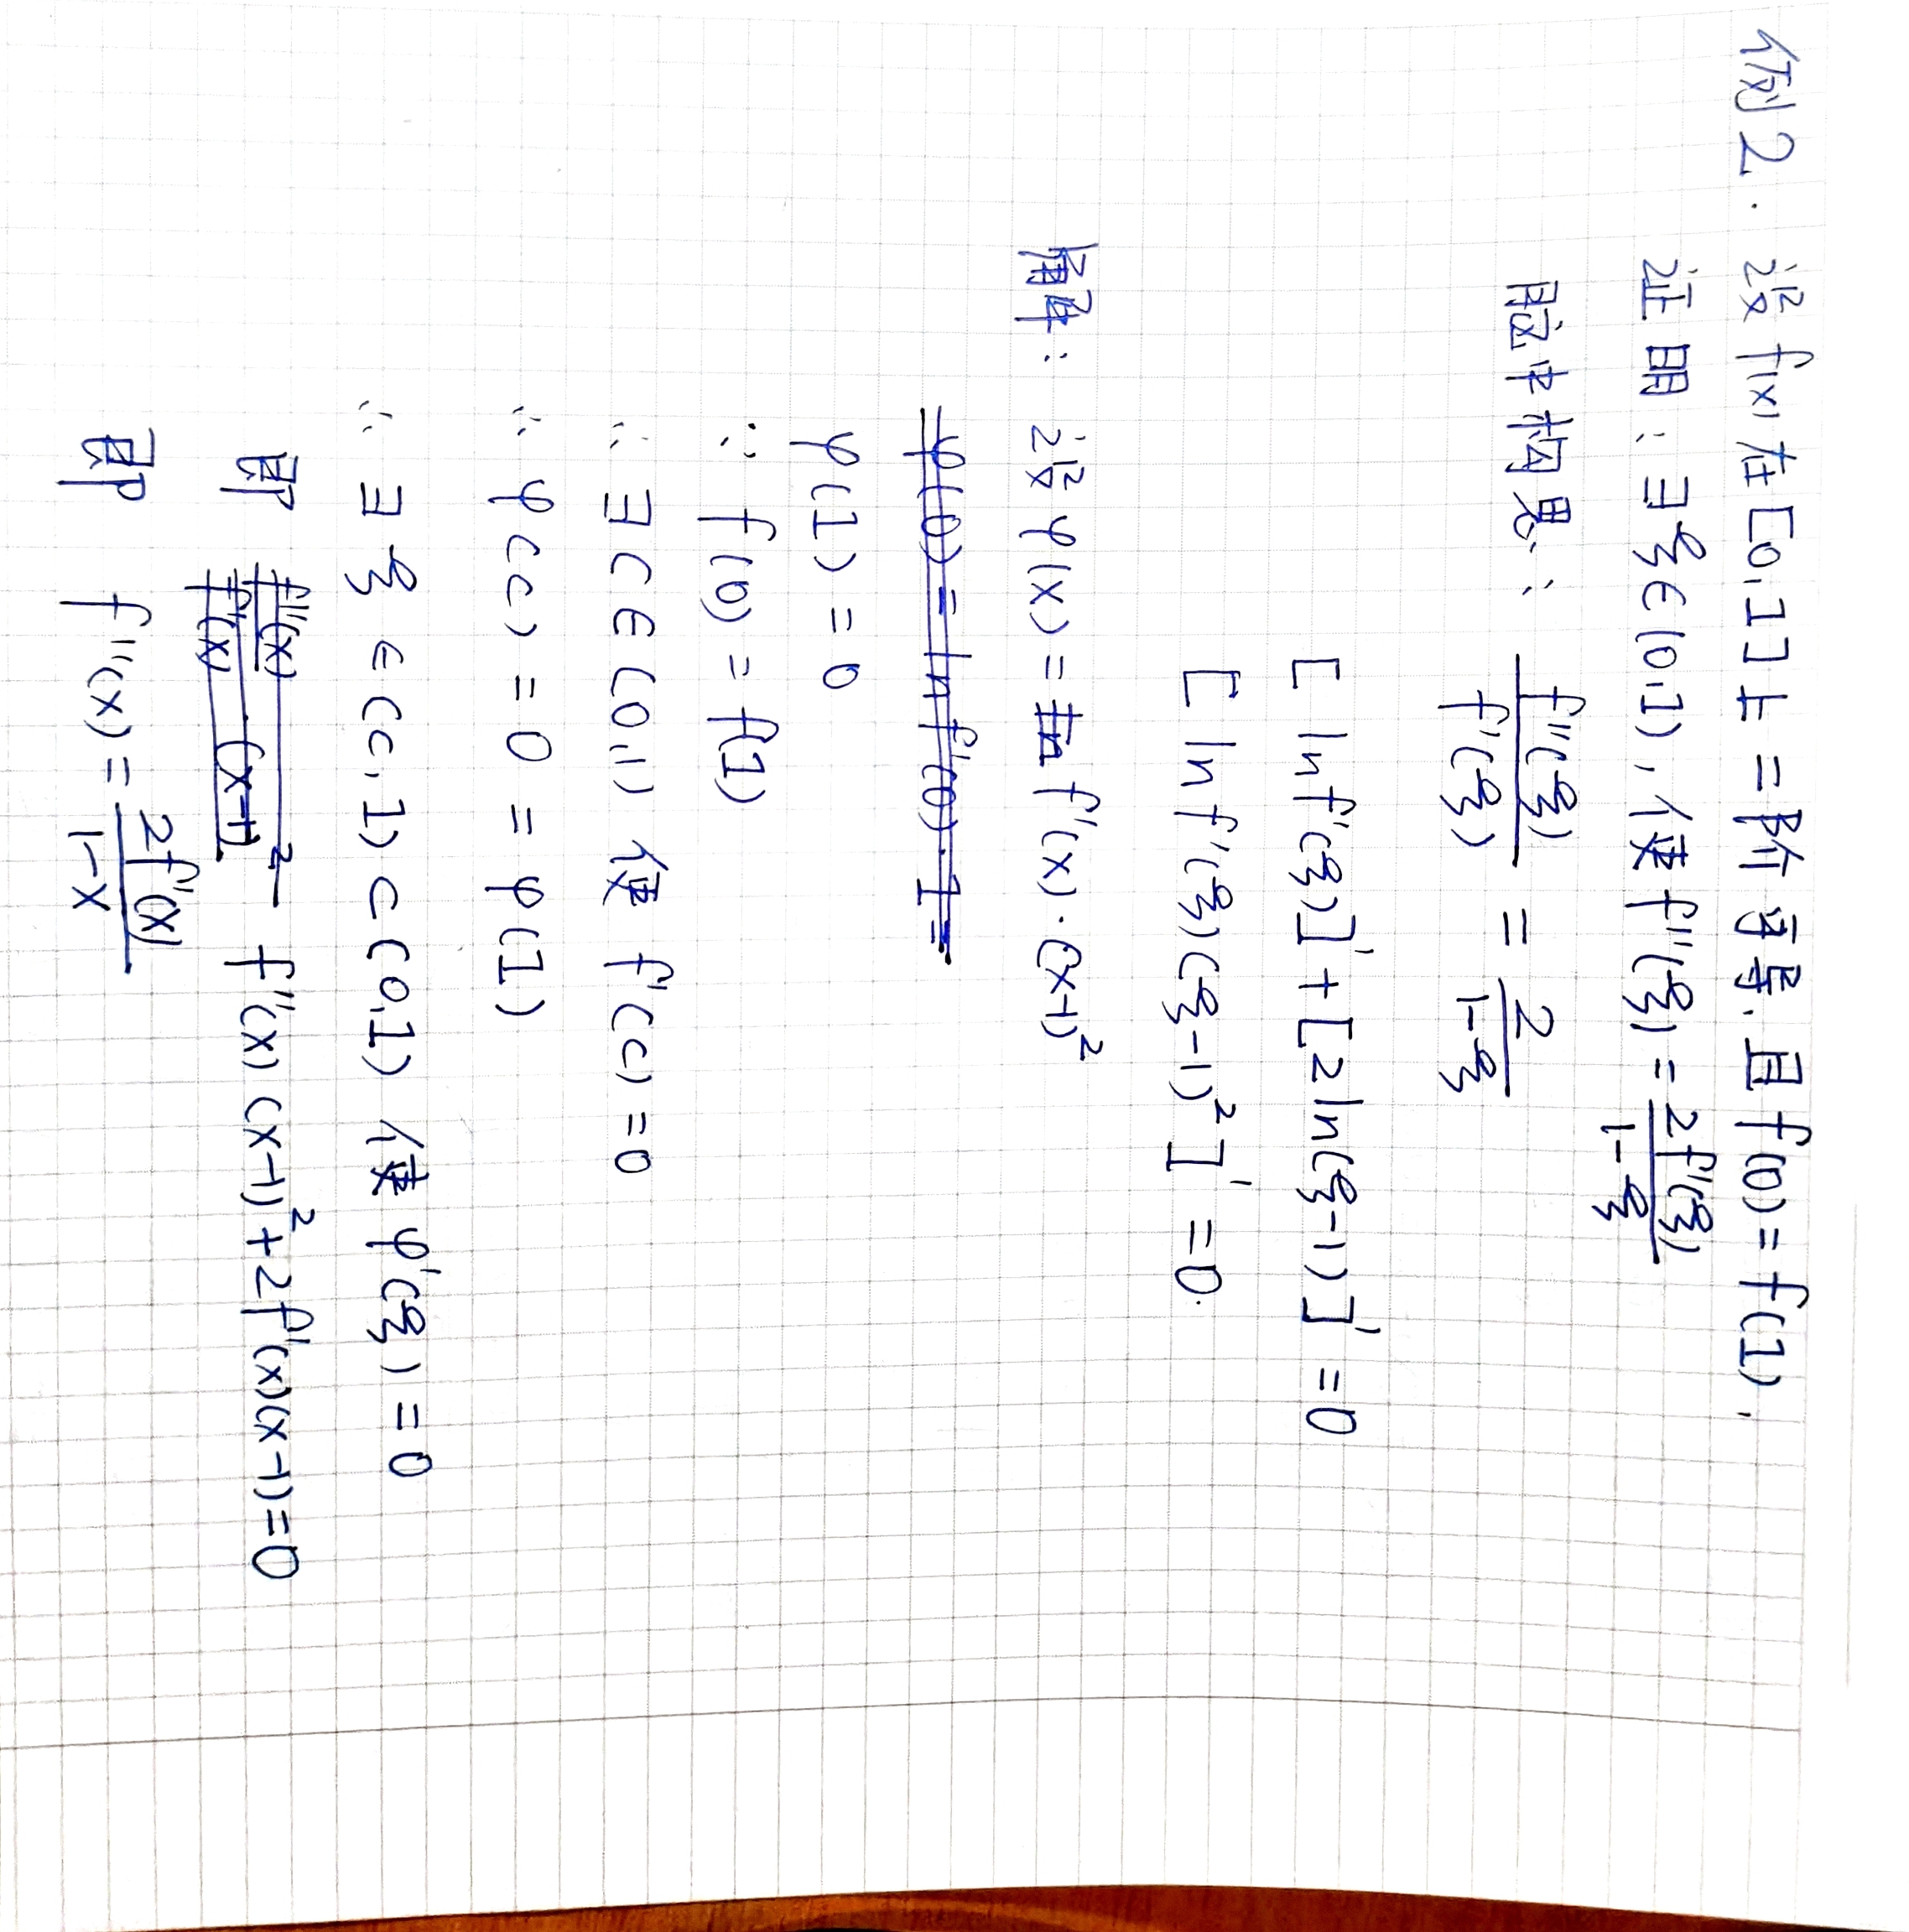 例2. 设f(x)在[0,1]上二阶可导,且f(0)=f(1),
证明:∃ξ∈(0,1),使f''(ξ)=2f'(ξ)/(1-ξ)
脑中构思: f''(ξ)/f'(ξ) = 2/(1-ξ)
[lnf'(ξ)]'+[2ln(ξ-1)]'=0
[lnf'(ξ)(ξ-1)²]'=0.
解: 设φ(x)=ln f'(x)·(x-1)²
φ(0)=lnf'(0)·1=
φ(1)=0
∵ f(0)=f(1)
∴ ∃C∈(0,1) 使 f'(c)=0
∴ φ(c)=0=φ(1)
∴ ∃ξ∈(c,1)⊂(0,1) 使φ'(ξ)=0
即 f''(x)/f'(x) ·(x-1)² f''(x)(x-1)²+2f'(x)(x-1)=0
即 f''(x)=2f'(x)/(1-x)